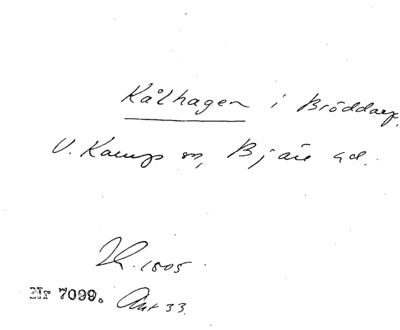 Kålhagen i Bröddarp,
V. Karup sn, Bjäre hd.
1805.
Nr 7099. Akt 33.